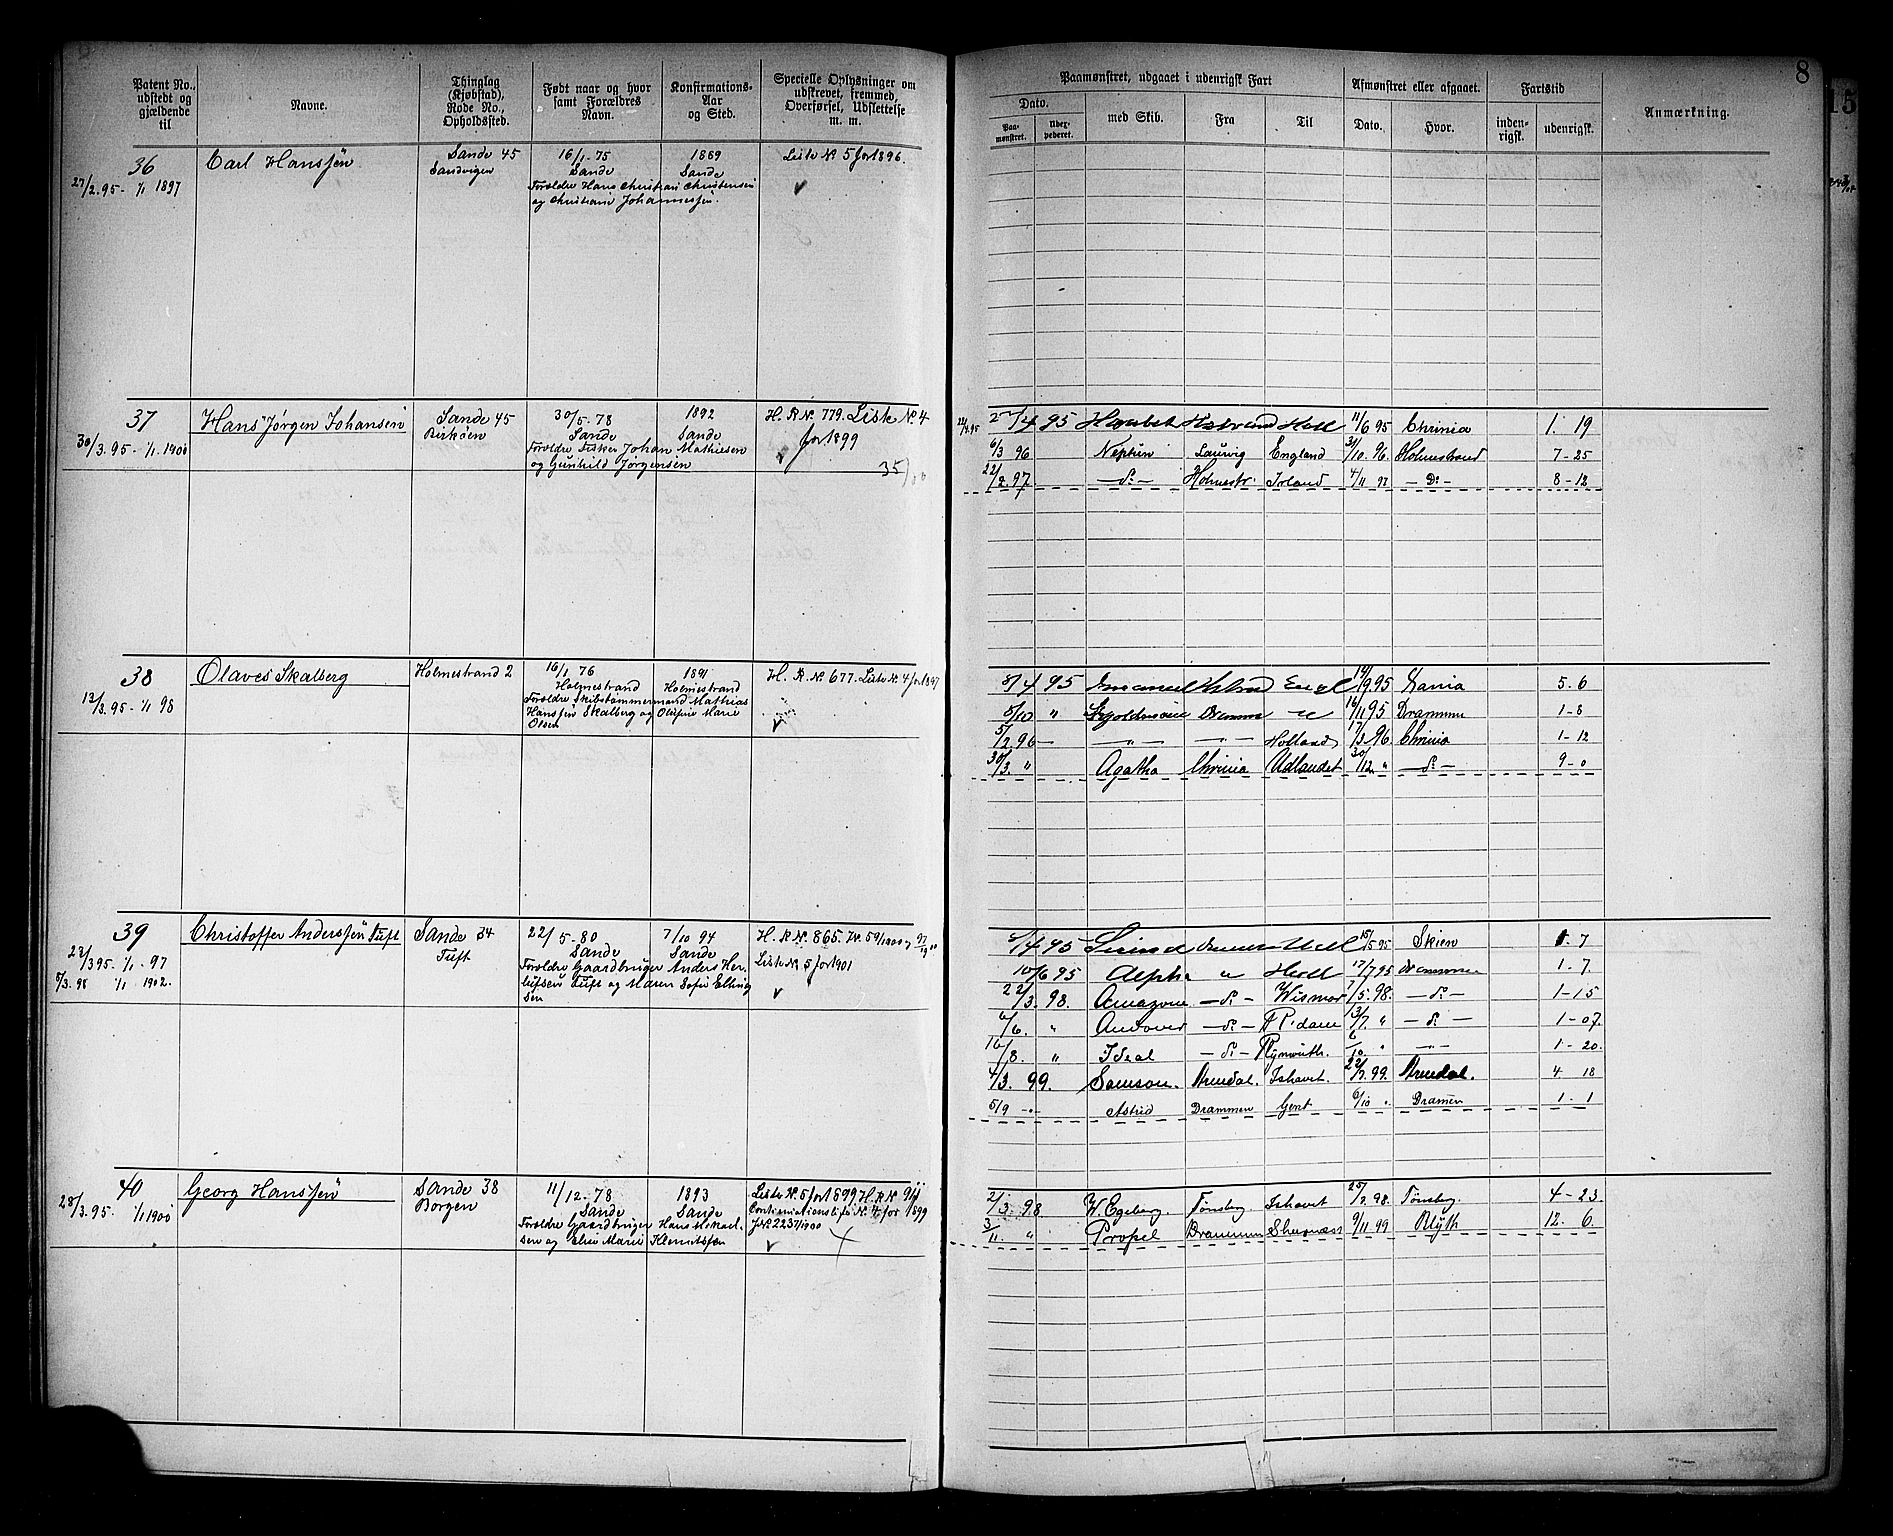 Patent No., udstedt og gjældende til
Navne.
Thinglag (Kjøbstad), Rode No., Opholdssted.
Født naar og hvor samt Forældres Navn.
Konfirmations- Aar og Sted.
Specielle Oplysninger om udskrevet, fremmed, Overførsel, Udslettelse m. m.
36
27/2.95 - 1/1 1897
Carl Hanssen
Sande 45
Sandvigen
16/1 75
Sande
Forældre Hans Christian Christensen
og Christiane Johannessen.
1889
Sande
Liste No 5 for 1896.
37
30/3.95 - 1/1.1900
Hans Jørgen Johansen
Sande 45
Birkøen
30/5-78
Sande
Forældre Fisker Johan Mathiesen
og Gunhild Jørgensen
1892
Sande
H. R No. 779. Liste No 4
for 1899
35/00
38
12/3.95 - 1/1 98
Olaves Skalberg
Holmestrand 2
16/1 76
Holmestrand
Forældre Skibstømmermand Mathias
Hanssen Skalberg og Olufine Marie
Olsen
1891
Holmestrand
H. R No 677. Liste No 4 for 1897
39
23/3 95 - 1/1 - 97
5/3. 98 1/1 1902.
Christoffer Anderssen Tuft
Sande 34
Tuft
22/5-80
Sande
Forældre Gaardbruger Anders Her-
lufsen Tuft og Maren Sofie Elling
sen
7/10 94
Sande
H. R No. 865. No 59/1900
Liste No 5 for 1901
40
28/3.95. 1/1 1900
Georg Hanssen
Sande 38
Borgen
11/12-78
Sande
Forældre Gaardbruger Hans Mikael-
sen og Elise Marie Klemetsen
1893
Sande
Liste No. 5 for 1899 H. R No
J No 2237/1900
8
15
Paamønstret, udgaaet i udenrigsk Fart
Afmønstret eller afgaaet.
Fartstid
Anmærkning.
Dato.
Paa- mønstret.
Exspederet.
med Skib.
Fra
Til
Dato.
Hvor.
inden- rigsk.
udenrigsk.
27/4 95 Hstrand Holl 11/6 95 Chrinia 1. 19
6/3 96 Neptun Laurvig England 31/10. 96. Holmestrand 7-25
22/2 97 -do- Holmestr. Irland 4/11 97 -Do- 8-12
8/4 95 Emanuel Hstrand Engl 14/9.95 Dania 5. 6
5/10 " Dramm 16/11 95 Drammen 1-8
5/2 96 - -"- -"- Holland 17/3 96. Chrinia 1-12
30/3. " Agatha Chrinia Udlandet 30/12 " -do- 9-0
6/4 95 Drammen Holl 15/5 95 Skien 1. 7
10/6 95 Alpha Holl 17/7 95 Drammen 1-7.
22/3. 98. Amazone -do- Wismar 7/5. 98. -do- 1-15
6/6. " Andover -do- 13/7. " -do- 1-07.
16/8. " Ideal -do- Plymouth. 6/10. " -"- 1-20.
4/3. 99. Samson. Arendal. Ishavet. 22/7. 99. Arendal. 4 18
5/9 -"- Astrid Drammen Gent 6/10 " Dramen 1-1
2/3. 98 W. Egeberg. Tønsberg. Ishavet 25/7. 98. Tønsberg. 4-23
3/11. " Propel Drammen Sheerness 9/11 99. Blyth 12. 6.